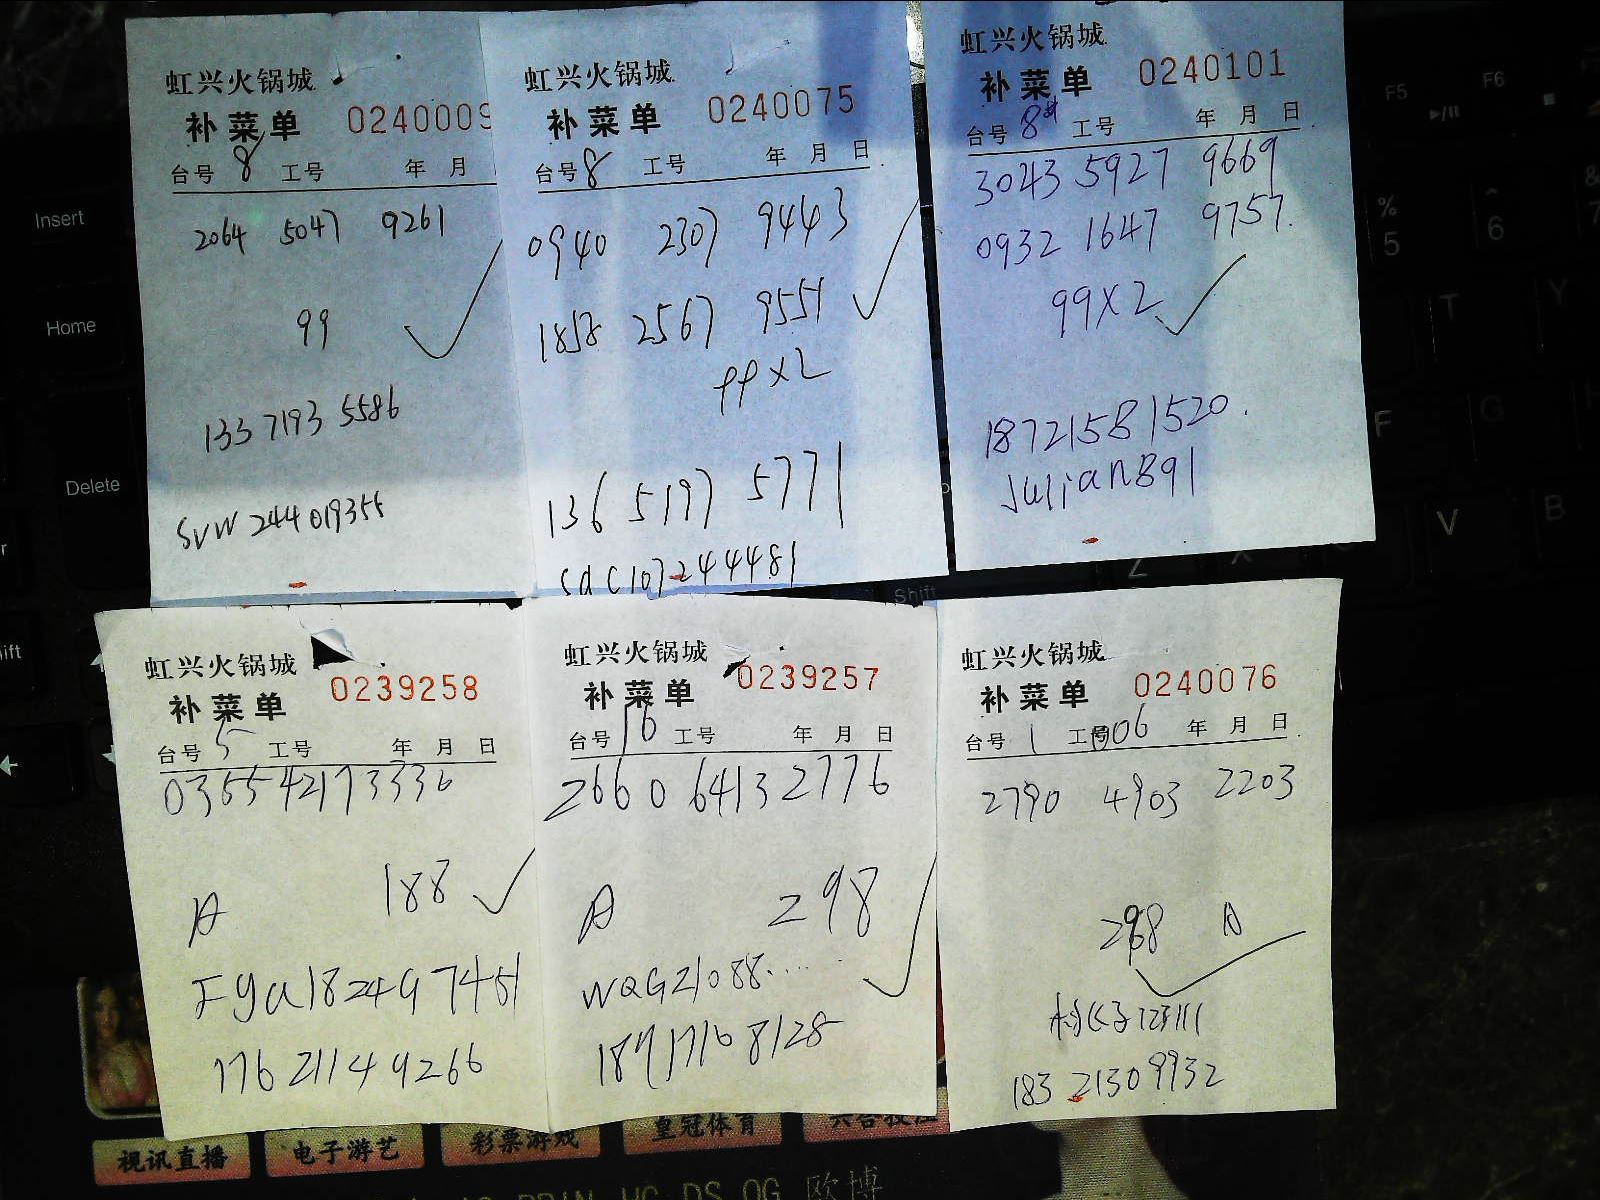 虹兴火锅城
补菜单 0240009
台号 8 工号 年 月
2064 5047 9261
99
133 7193 5586
SVW 244019355
虹兴火锅城
补菜单 0240075
台号 8 工号 年 月 日
0940 2307 9443
1858 2567 9551
99×2
136 5197 5771
sdc107244481
虹兴火锅城
补菜单 0240101
台号 8# 工号 年 月 日
3043 5927 9669
0932 1647 9757.
99×2
18721581520.
Julian891
虹兴火锅城
补菜单 0239258
台号 5 工号 年 月 日
0355 4217 3336
A 188
Fya182497451
176 2114 9266
虹兴火锅城
补菜单 0239257
台号 16 工号 年 月 日
2660 6413 2776
A 298
WQG21088.....
189 1716 8128
虹兴火锅城
补菜单 0240076
台号 1 工号 906 年 月 日
2790 4903 2203
298 A
183 2130 9932
视讯直播 电子游艺 彩票游戏 皇冠体育
欧博
Insert
Home
Delete
Shift
F5
F6
%
5
6
T
Y
F
G
V
B
Z
X